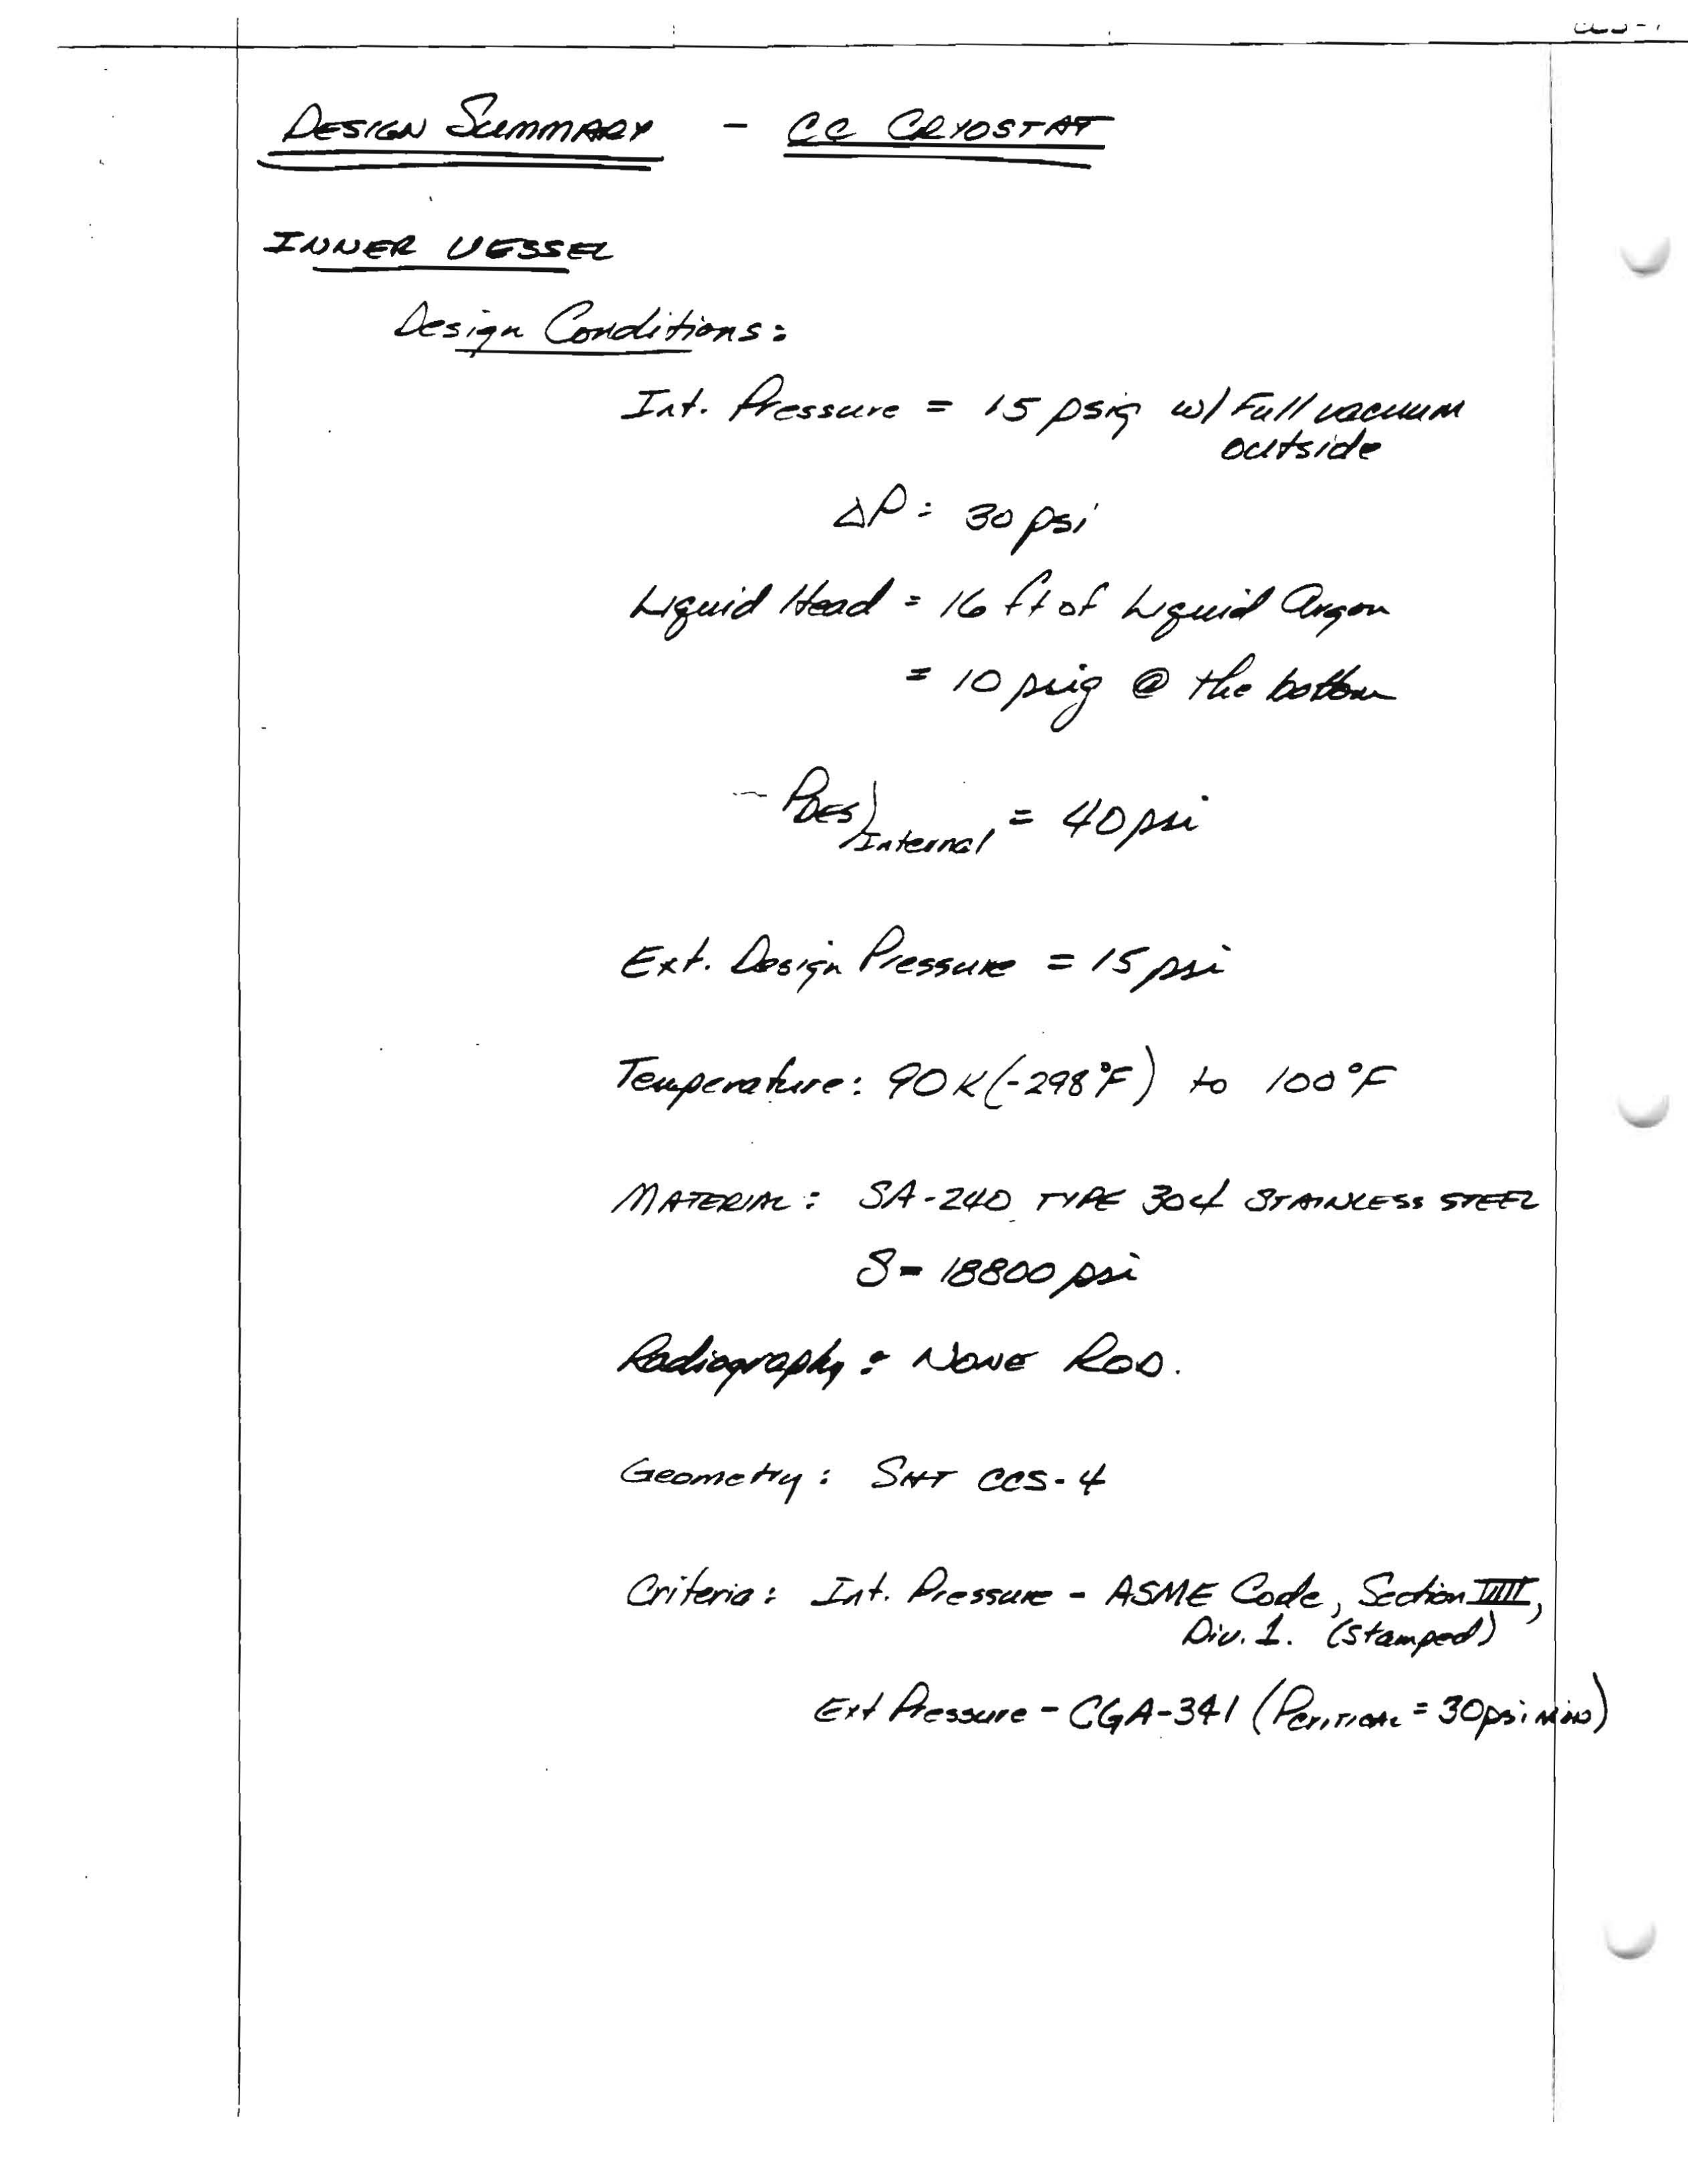 DESIGN SUMMARY - CC CRYOSTAT
INNER VESSEL
Design Conditions:
Int. Pressure = 15 psig w/ Full vacuum
outside
ΔP = 30 psi
Liquid Head = 16 ft of Liquid Argon
= 10 psig @ the bottom
PDES)Internal = 40 psi
Ext. Design Pressure = 15 psi
Temperature: 90K (-298°F) to 100°F
MATERIAL: SA-240 TYPE 304 STAINLESS STEEL
S = 18800 psi
Radiography: NONE RQD.
Geometry: SHT CCS-4
Criteria: Int. Pressure - ASME Code, Section VIII,
Div. 1. (stamped)
Ext Pressure - CGA-341 (PCRITICAL = 30psi MIN)